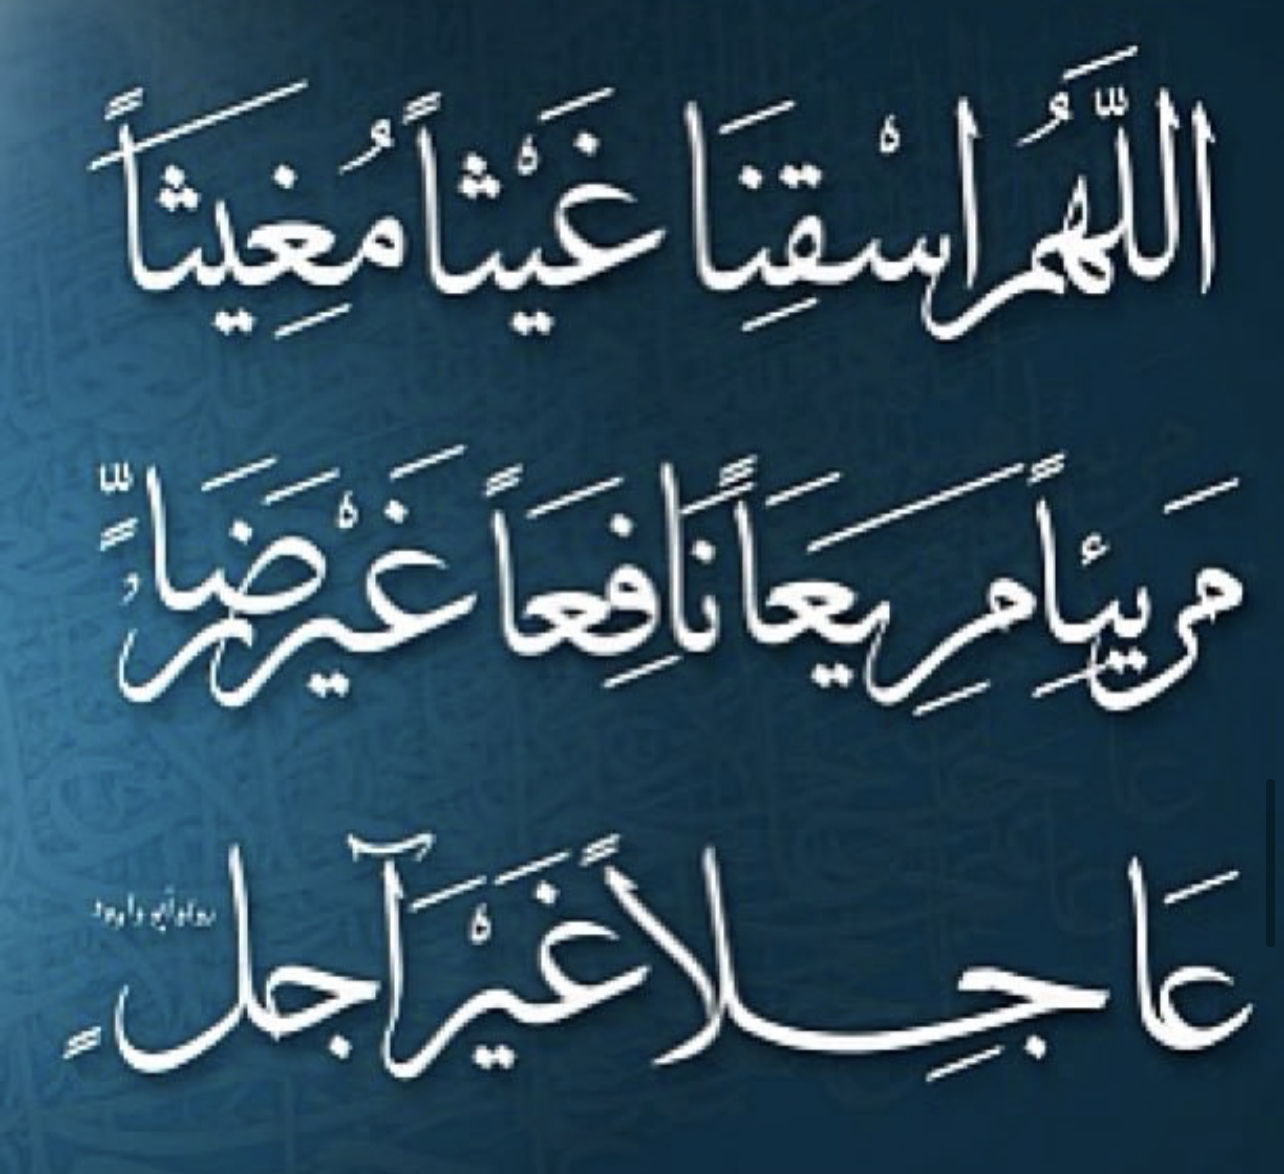 اللَّهُمَّ اسْقِنَا غَيْثاً مُغِيثاً
مَرِيئاً مَرِيعَاً نَافِعَاً غَيْرَ ضَارٍّ
عَاجِلاً غَيْرَ آجِلٍ
رواه أبو داوود